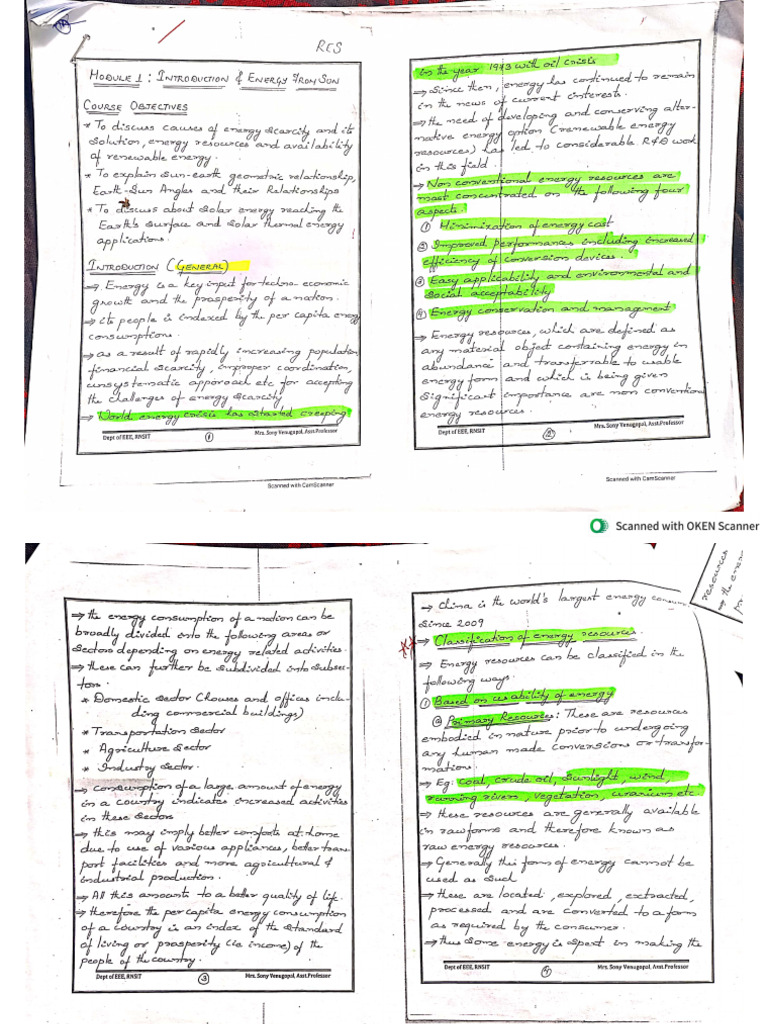 RES
MODULE 1: INTRODUCTION of ENERGY FROM SUN
COURSE OBJECTIVES
* To discuss causes of energy scarcity and its
solution, energy resources and availability
of renewable energy.
* To explain Sun-earth geometric relationship,
Earth-Sun Angles and their Relationships
* To discuss about solar energy reaching the
Earth's surface and solar thermal energy
applications.
INTRODUCTION (GENERAL)
→ Energy is a key input for techno-economic
growth and the prosperity of a nation.
→ its people is indexed by the per capita energy
consumptions.
→ as a result of rapidly increasing population,
financial scarcity, improper coordination,
unsystematic approach etc for accepting
the challenges of energy scarcity
→ World energy crisis has started creeping
Dept of EEE, RNSIT
1
Mrs. Sony Venugopal, Asst.Professor
Scanned with CamScanner
in the year 1973 with oil crisis
→ Since then, energy has continued to remain
in the news of current interests.
→ the need of developing and conserving alter-
native energy option (renewable energy
resources) has led to considerable R&D work
in this field.
→ Non conventional energy resources are
most concentrated on the following four
aspects.
① Minimization of energy cost
② Improved performances including increased
efficiency of conversion devices.
③ Easy applicability and environmental and
Social acceptability
④ Energy conservation and management
→ Energy resources, which are defined as
any material object containing energy in
abundance and transferrable to usable
energy form and which is being given
significant importance are non conventional
energy resources.
Dept of EEE, RNSIT
2
Mrs. Sony Venugopal, Asst.Professor
Scanned with CamScanner
Scanned with OKEN Scanner
→ the energy consumption of a nation can be
broadly divided into the following areas or
sectors depending on energy related activities.
→ these can further be subdivided into subsec-
tors.
* Domestic sector (houses and offices inclu-
ding commercial buildings)
* Transportation sector
* Agriculture sector
* Industry sector.
→ consumption of a large amount of energy
in a country indicates increased activities
in these sectors
→ this may imply better comforts at home
due to use of various appliances, better trans-
port facilities and more agricultural &
industrial production.
→ All this amounts to a better quality of life.
→ therefore the per capita energy consumption
of a country is an index of the standard
of living or prosperity (ie income) of the
people of the country.
Dept of EEE, RNSIT
3
Mrs. Sony Venugopal, Asst.Professor
→ China is the world's largest energy consum
since 2009
→ Classification of energy resources.
→ Energy resources can be classified in the
following ways.
① Based on usability of energy
ⓐ Primary Resources: These are resources
embodied in nature prior to undergoing
any human made conversions or transfor-
mations.
→ Eg: coal, crude oil, sunlight, wind,
running rivers, vegetation, uranium etc.
→ these resources are generally available
in raw forms and therefore known as
raw energy resources.
→ Generally this form of energy cannot be
used as such
→ these are located, explored, extracted,
processed and are converted to a form
as required by the consumer.
→ thus some energy is spent in making the
Dept of EEE, RNSIT
4
Mrs. Sony Venugopal, Asst.Professor
resources
→ the ene